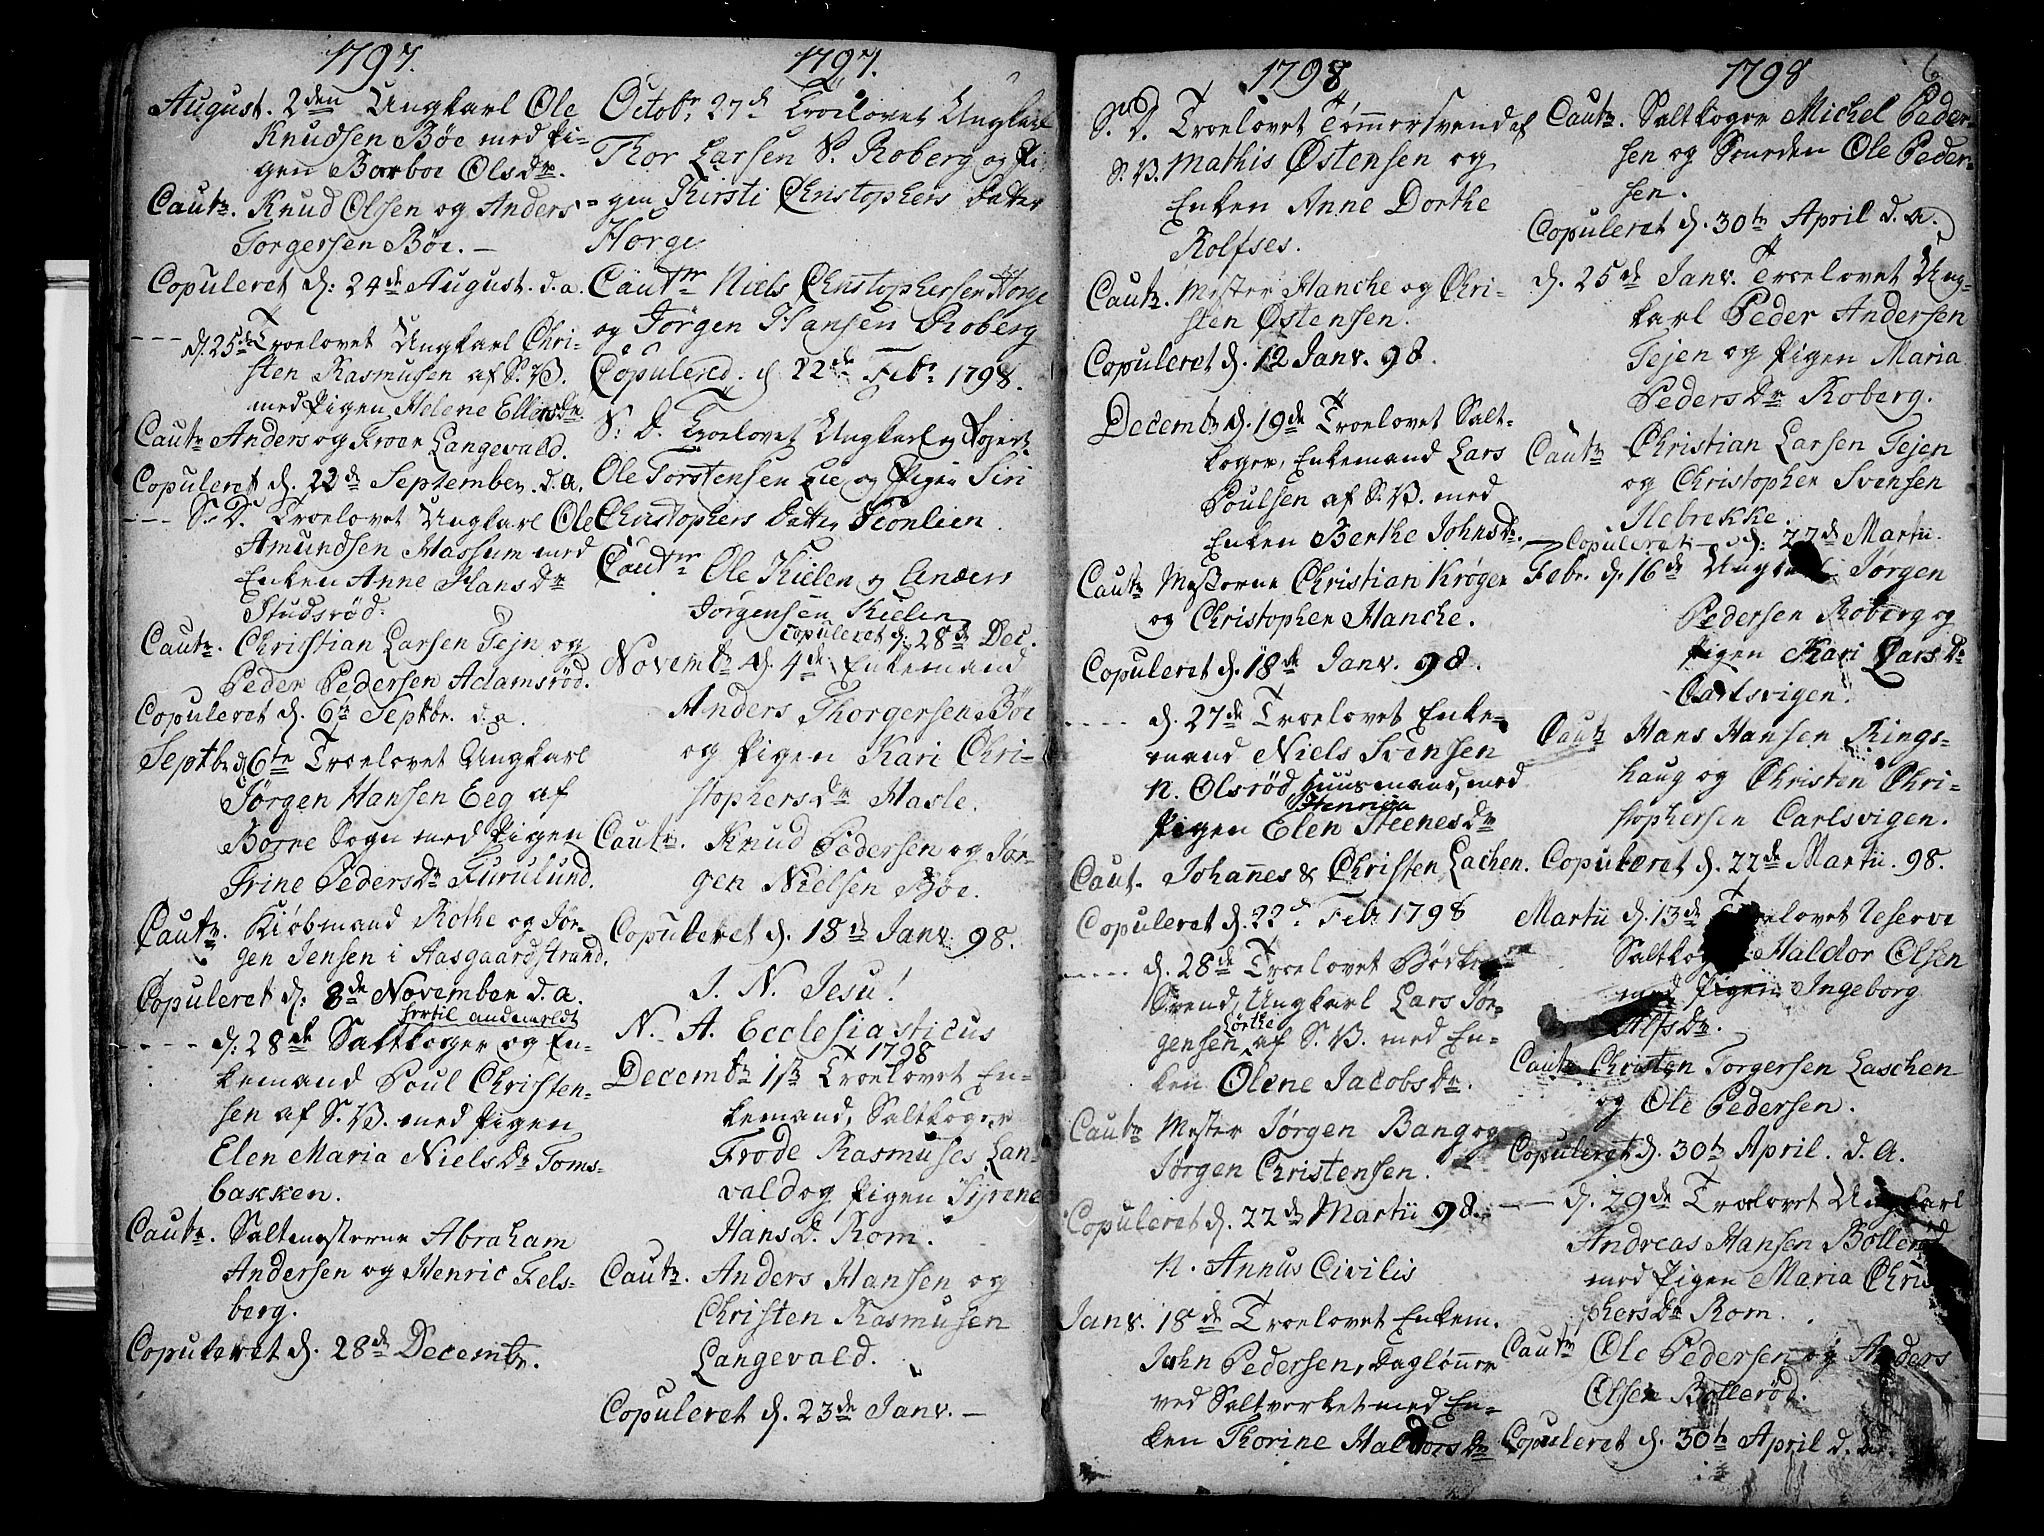 1797.
August. 2den Ungkarl Ole
Knudsen Bøe med Pi-
gen Barboe Olsdr.
Cautr. Knud Olsen og Anders
Torgersen Bøe. —
Copuleret d: 24de August. d.a.
--- d. 25de Troelovet Ungkarl Chri-
sten Rasmusen af S.V.
med Pigen Helene Ellersdr
Cautr Anders og Froer Langevald.
Copuleret d. 22de September. d.a.
--- S. D. Troelovet Ungkarl Ole
Amundsen Hassum med
Enken Anne Hansdr
Studsrød.
Cautr. Christian Larsen Tejn og
Peder Pedersen Adamsrød.
Copuleret d. 6te Septbr. d.a.
Septbr d. 6te Troelovet Ungkarl
Jørgen Hansen Eeg af
Borre Sogn med Pigen
Trine Pedersdr Furulund.
Cautr. Kiøbmand Rothe og Jør-
gen Jensen i Aasgaardstrand.
Copuleret d: 8de November d.a.
hertil anmeldt
---- d: 28de Saltkoger og En-
kemand Poul Christen-
sen af S.V. med Pigen
Elen Maria Nielsdr Toms-
bakken.
Cautr. Saltmesterne Abraham
Andersen og Henric Fels-
berg.
Copuleret d. 28de Decembr.
1797.
Octobr, 27d Troelovet Ungkarl
Thor Larsen N. Roberg og Pi-
gen Kirsti Christophers Datter
Horge
Cautr Niels Christophersen Horge
og Jørgen Hansen Roberg
Copulered d 22de Febr 1798.
S. D. Troelovet Ungkarl og
Ole Torstensen Lie og Pigen Siri
Christophers Datter Feonlien.
Cautr Ole Kielen og Anders
Jørgensen Kielen
copuleret d: 28de Dec.
Novembr d. 4de Enkemand
Anders Thorgersen Bøe
og Pigen Kari Chri-
stophersdr Hasle.
Cautr. Knud Pedersen og Jør-
gen Nielsen Bøe.
Copuleret d. 18de Janv. 98.
I. N. Jesu!
N. A. Ecclesiasticus
1798
Decembr 1ste Troelovet En-
kemand, Saltkoger
Frode Rasmuses Lan-
vald og Pigen Sirene
Hans D. Rom.
Cautr. Anders Hansen og
Christen Rasmusen
Langevald.
Copuleret d. 23de Janv. —
1798
S. D. Troelovet Tømmersvend af
S.V. Mathis Østensen og
Enken Anne Dorthe
Rolfses.
Cautr. Mester Hanche og Chri-
sten Østensen.
Copuleret d. 12 Janv. 98.
Decembr d. 19de Troelovet Salt-
koger, Enkemand Lars
Poulsen af S.V. med
Enken Berthe Johnsdr.
Cautr Mesterne Christian Krøger
og Christopher Hanche.
Copuleret d. 18de Janv. 98.
---- d. 27de Troelovet Enke-
mand Niels Svensen
N. Olsrød Huusmand, med
Henrica
Pigen Elen Steenesdr
Caut. Johannes & Christen Lachen.
Copuleret d. 22d Febr 1798
---- d. 28de Troelovet Bødker
Svend, Ungkarl Lars Jør-
Dorthe
gensen af S.V. med En-
ken Olene Jacobsdr.
Cautr Mester Jørgen Bang og
Jørgen Christensen.
Copuleret d. 22de Martii 98.
N. Annus Civilis
Janv. 18de Troelovet Enkem.
John Pedersen, Dagløner
ved Saltverket med En-
ken Thorine Haldorsdr
1798
6
Cautr. Saltkoger Michel Peder-
sen og Smeden Ole Peder-
sen.
Copuleret d. 30te April d.a.
d. 25de Janv. Troelovet Ung-
karl Peder Andersen
Tejen og Pigen Maria
Pedersdr Roberg.
Cautr Christian Larsen Tejen
og Christopher Svensen
Ilebrekke.
— Copuleret — d: 22de Martii.
Febr. d. 16de Ungkarl Jørgen
Pedersen Roberg og
Pigen Kari Larsdr
Carlsvigen.
Cautr Hans Hansen Rings-
haug og Christen Chri-
stophersen Carlsvigen.
Copuleret d. 22de Martii. 98.
Martii d. 13de Troelovet Reserve
Saltkoger Haldor Olsen
med Pigen Ingeborg
Alfsdr.
Cautr Christen Torgersen Laschen
og Ole Pedersen.
Copuleret d. 30te April. d.a.
--- d. 29de Troelovet Ungkarl
Andreas Hansen Bollerød
med Pigen Maria Chris
phersdr Rom.
Cautr Ole Pedersen og Anders
Olsen Bollerød.
Copuleret d. 30te April d. a.